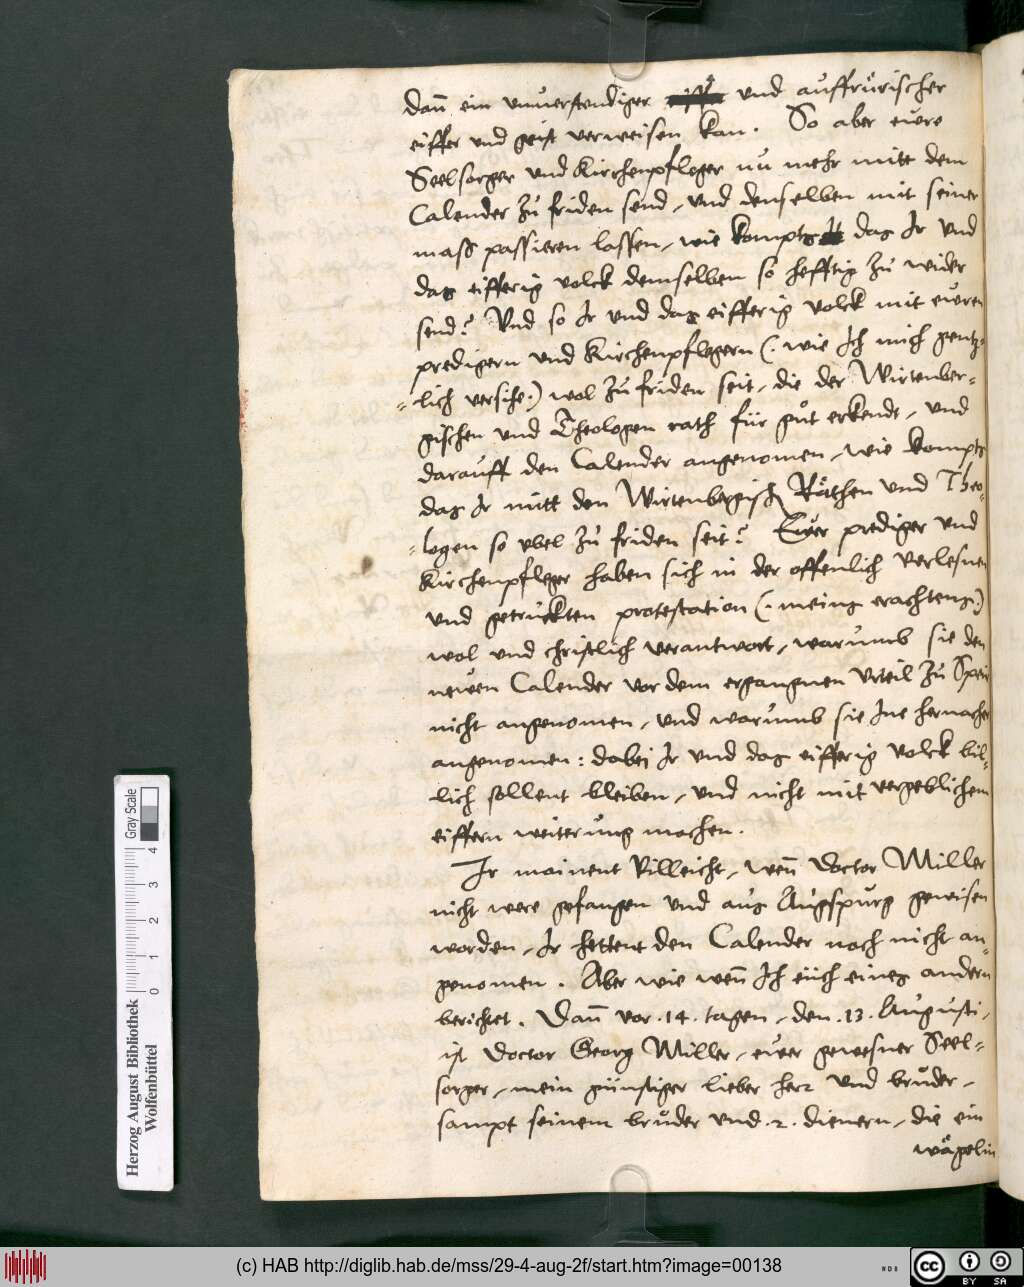 dañ ein unuerstendiger und auffrürischer
eiffer und geist verweisen kan. So aber euwre
Seelsorger und Kirchenpfleger nu mehr mitt dem
Calender zu friden send, und denselben mit seiner
mass passieren lassen, wie kompts das Ir und
das eifferig volck demselben so hefftig zu wider
send? Und so Ir und das eifferig volck mit euwren
predigern und Kirchenpflegern (: wie Ich mich gentz=
=lich versihe:) wol zu friden seit, die der Wirtenber=
gischen und Theologen rath für gůt erkendt, und
darauff den Calender angenomen, wie kompts
das Ir mitt den Wirtenbergisch Räthen und Theo=
=logen so vbel zu friden seit? Euwer prediger und
Kirchenpfleger haben sich in der offenlich verlesnen
und getruckten protestation (: meins erachtens:)
wol und christlich verantwort, warumb sie den
neuwen Calender vor dem ergangnen Vrteil zu Speir
nicht angenomen, und warumb sie Ine hernacher
angenomen: dabei Ir und das eifferig volck bil=
lich sollent bleiben, und nicht mit vergeblichem
eiffern weiterung machen.
Ir mainent villeicht, weñ Doctor Miller
nicht were gefangen und aus Augspurg gewisen
worden, Ir hettent den Calender noch nicht an=
genomen. Aber wie weñ Ich eüch eines andern
berichtet. Dañ vor .14. tagen, den .13. Augusti,
ist Doctor Georg Miller, euwer gewesner Seel=
sorger, mein günstiger lieber herr und brůder,
sampt seinem brůder und .2. dienern, die ein
wägelin
Gray Scale
0 1 2 3 4
Herzog August Bibliothek
Wolfenbüttel
(c) HAB http://diglib.hab.de/mss/29-4-aug-2f/start.htm?image=00138
WDB
cc BY SA